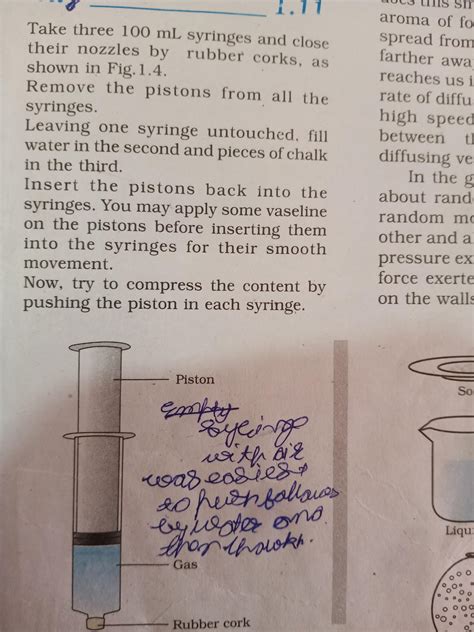 1.11
Take three 100 mL syringes and close
their nozzles by rubber corks, as
shown in Fig.1.4.
Remove the pistons from all the
syringes.
Leaving one syringe untouched, fill
water in the second and pieces of chalk
in the third.
Insert the pistons back into the
syringes. You may apply some vaseline
on the pistons before inserting them
into the syringes for their smooth
movement.
Now, try to compress the content by
pushing the piston in each syringe.
Piston
with air
was easiest
to push
by water
Gas
Rubber cork
aroma of fo
spread from
farther awa
reaches us i
rate of diffu
high speed
between t
diffusing ve
In the g
about rand
random mo
other and a
pressure ex
force exerte
on the walls
So
Liqu